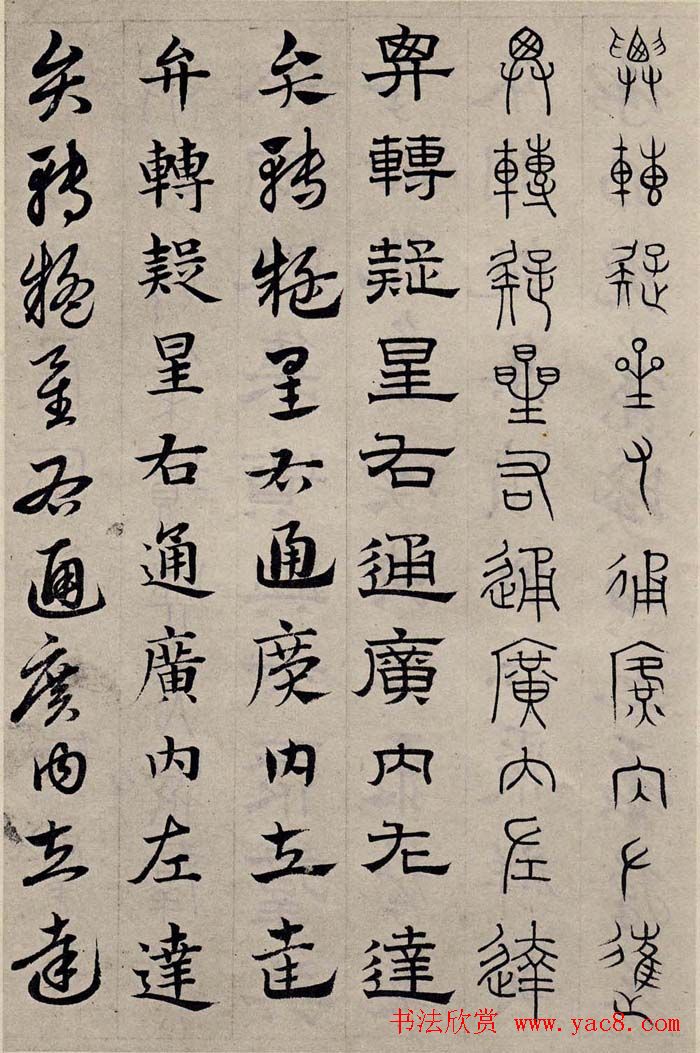 弁轉疑星右通廣内左達
弁轉疑星右通廣内左達
弁轉疑星右通廣内左達
弁轉疑星右通廣内左達
弁轉疑星右通廣内左達
弁轉疑星右通廣内左達
书法欣赏 www.yac8.com